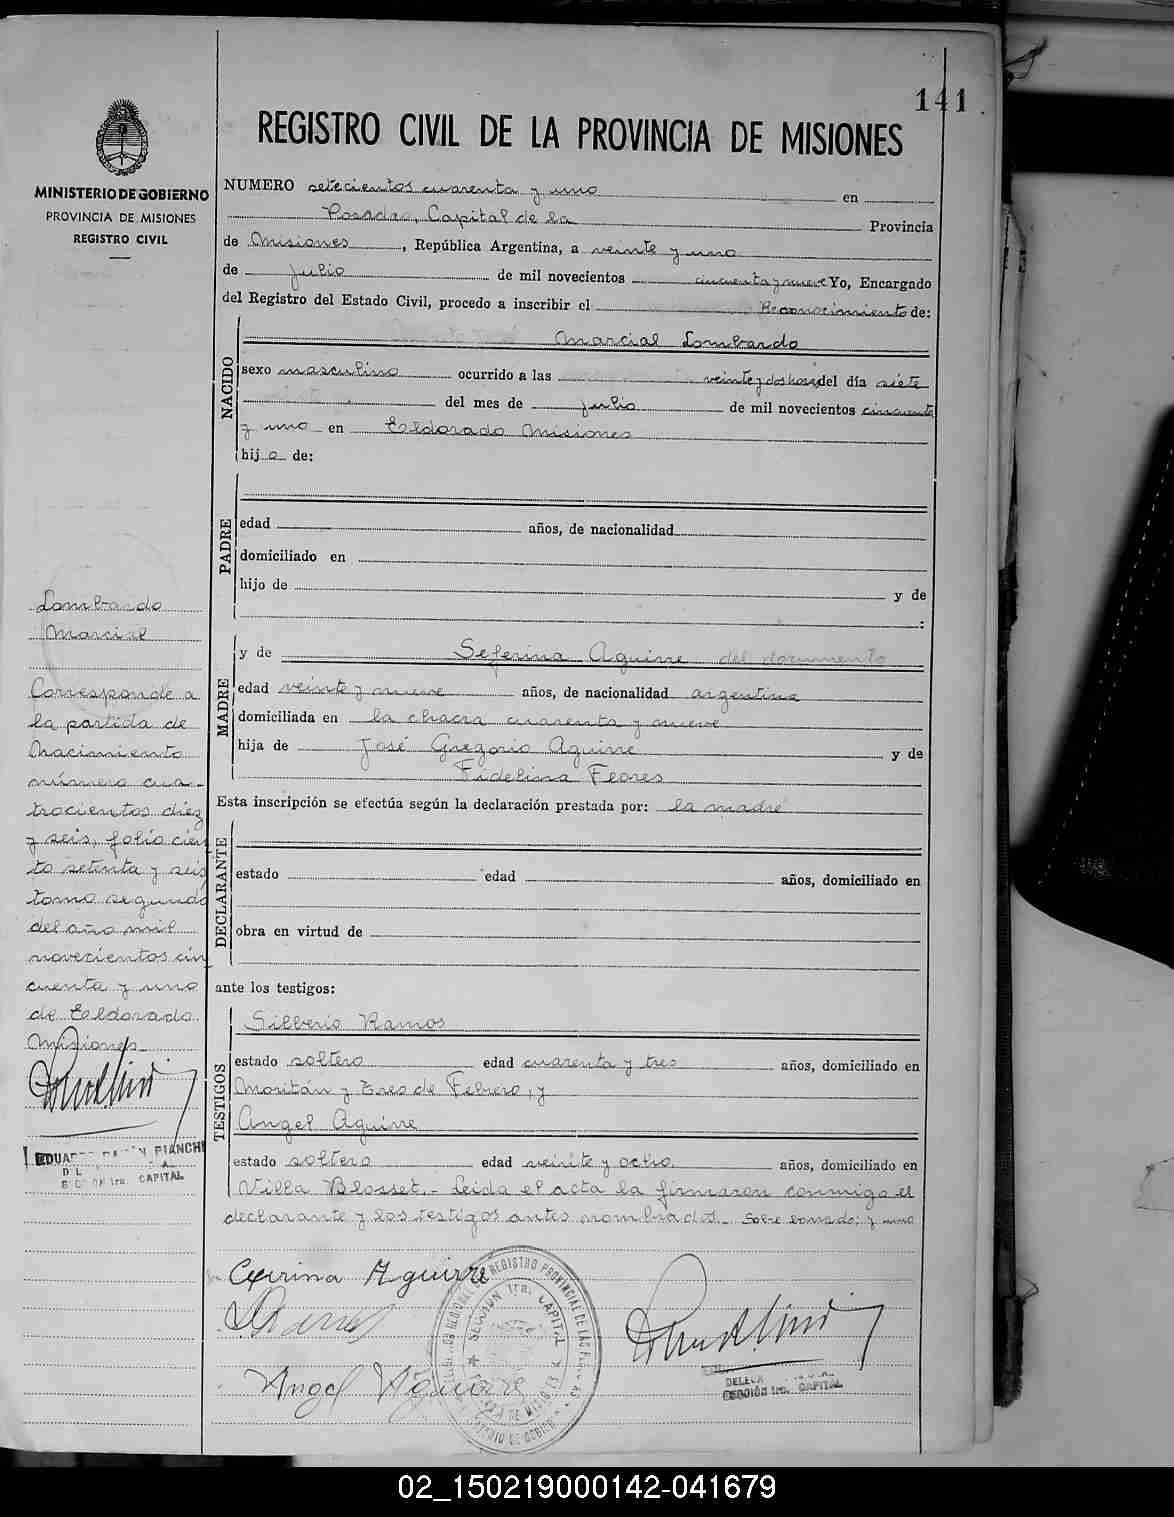 141
REGISTRO CIVIL DE LA PROVINCIA DE MISIONES
MINISTERIO DE GOBIERNO
PROVINCIA DE MISIONES
REGISTRO CIVIL
NUMERO setecientos cuarenta y uno en
Posadas, Capital de la Provincia
de Misiones, República Argentina, a veinte y uno
de julio de mil novecientos cincuenta y nueve Yo, Encargado
del Registro del Estado Civil, procedo a inscribir el Reconocimiento de:
NACIDO
Marcial Lombardo
sexo masculino ocurrido a las veinte y dos horas del día siete
del mes de julio de mil novecientos cincuenta
y uno en Eldorado Misiones
hijo de:
PADRE
edad años, de nacionalidad
domiciliado en
hijo de y de
:
MADRE
y de Seferina Aguirre del documento
edad veinte y nueve años, de nacionalidad argentina
domiciliada en la chacra cuarenta y nueve
hija de José Gregorio Aguirre y de
Fidelina Flores
Esta inscripción se efectúa según la declaración prestada por: la madre
DECLARANTE
estado edad años, domiciliado en
obra en virtud de
ante los testigos:
TESTIGOS
Silberio Ramos
estado soltero edad cuarenta y tres años, domiciliado en
y Tres de Febrero, y
Angel Aguirre
estado soltero edad veinte y ocho años, domiciliado en
Villa Blosset.- Leida el acta la firmaron conmigo el
declarante y los testigos antes nombrados.- Sobre borrado: y uno
Lombardo
Marcial
Corresponde a
la partida de
Nacimiento
número cua-
trocientos diez
y seis, folio cien
to setenta y seis
tomo segundo
del año mil
novecientos cin
cuenta y uno
de Eldorado
Misiones
BIANCHI
CAPITAL
Aguirre
Angel Aguirre
SECCION 1ra. CAPITAL
SECCIÓN 1ra. CAPITAL
02_150219000142-041679